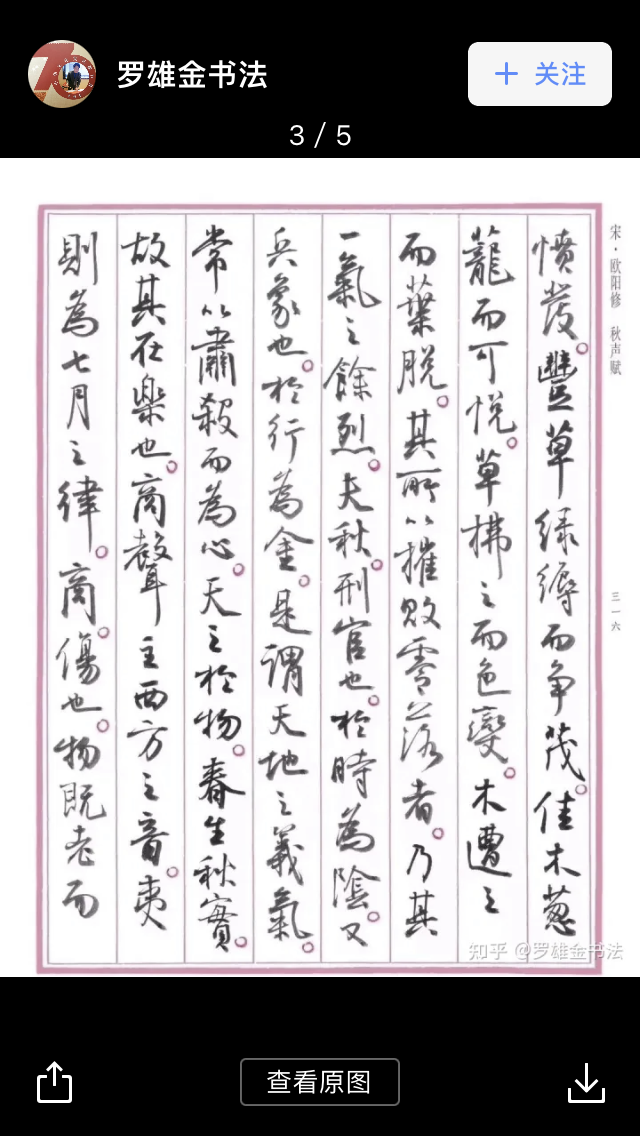 罗雄金书法
+ 关注
3 / 5
宋·欧阳修 秋声赋
三一六
愤发。豐草绿縟而争茂。佳木葱
蘢而可悦。草拂之而色變。木遭之
而葉脱。其所以摧败零落者。乃其
一氣之餘烈。夫秋。刑官也。於時為陰。又
兵象也。於行為金。是谓天地之義氣。
常以肅殺而為心。天之於物。春生秋實。
故其在樂也。商聲主西方之音。夷
則為七月之律。商。傷也。物既老而
知乎 @罗雄金书法
查看原图